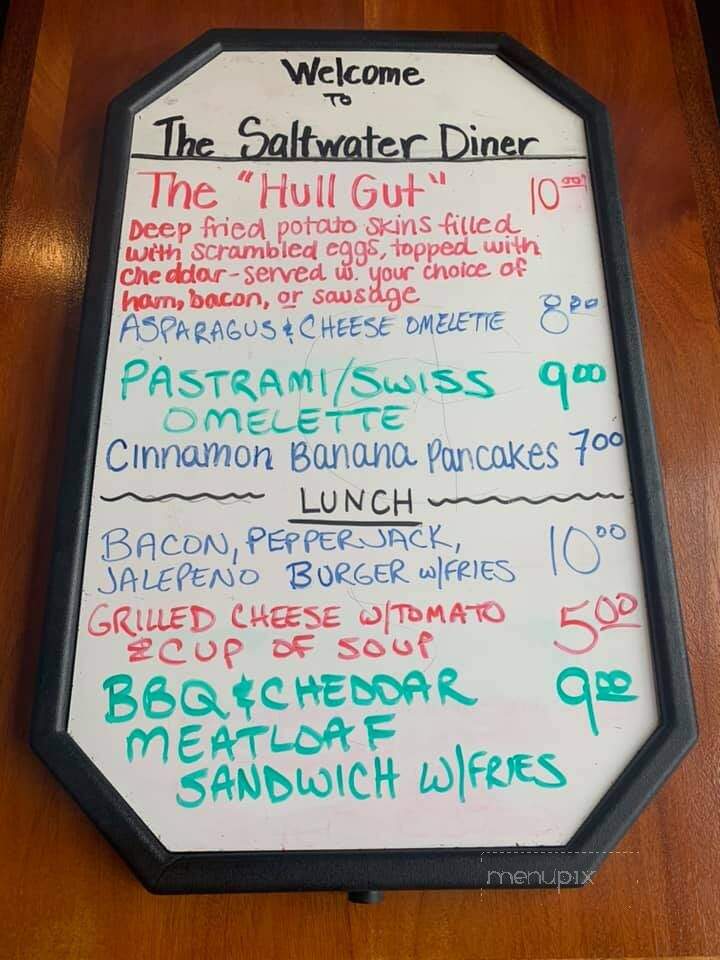 Welcome
TO
The Saltwater Diner
The "Hull Gut" 10.00
Deep fried potato skins filled
with scrambled eggs, topped with
cheddar - served w. your choice of
ham, bacon, or sausage
ASPARAGUS & CHEESE OMELETTE 8 00
PASTRAMI/SWISS 9 00
OMELETTE
Cinnamon Banana Pancakes 7 00
LUNCH
BACON, PEPPERJACK, 10 00
JALEPENO BURGER W/FRIES
GRILLED CHEESE W/TOMATO 5 00
& CUP OF SOUP
BBQ & CHEDDAR 9 00
MEATLOAF
SANDWICH W/FRIES
menupix